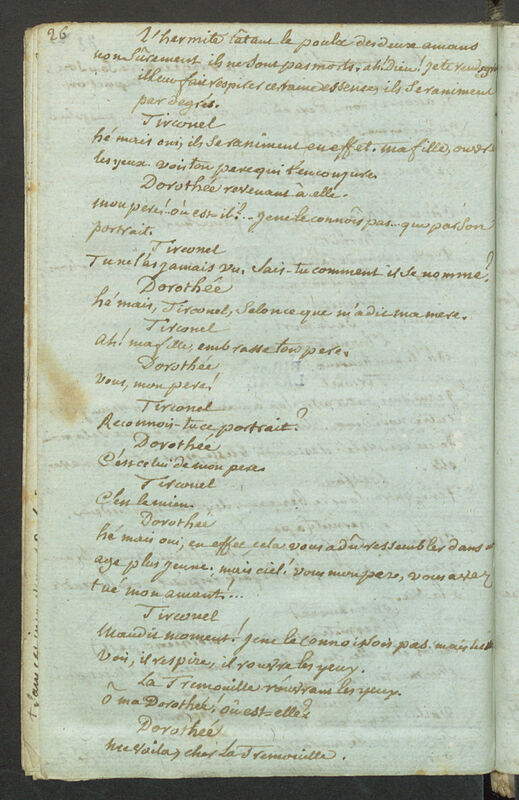 26
L'hermite tâtant le poulx des deux amans
non sûrement ils ne sont pas morts. ah! Dieu! je te rends grace
il leur fait respirer certaine essence, ils se raniment
par degrés.
Tirconel
hé mais oui, ils se raniment en effet. ma fille, ouvre
les yeux. vois ton pere qui t'en conjure.
Dorothée revenant à elle.
mon pere! où est-il?... je ne le connois pas... que par son
portrait.
Tirconel
Tu ne l'as jamais vu. Sais-tu comment il se nomme?
Dorothée
hé mais, Tirconel, selon ce que m'a dit ma mere.
Tirconel
Ah! ma fille, embrasse ton pere.
Dorothée
Vous, mon pere!
Tirconel
Reconnois-tu ce portrait?
Dorothée
C'est celui de mon pere.
Tirconel
C'est le mien.
Dorothée
hé mais oui, en effet, cela vous a dû ressembler dans un
age plus jeune. mais ciel! vous mon pere, vous avez
tué mon amant!...
Tirconel
Maudit moment! je ne le connoissois pas. mais
Vois, il respire, il rouvre les yeux.
La Tremouille rouvrant les yeux.
ô ma Dorothée, où est-elle?
Dorothée
me voila, cher La Tremouille.